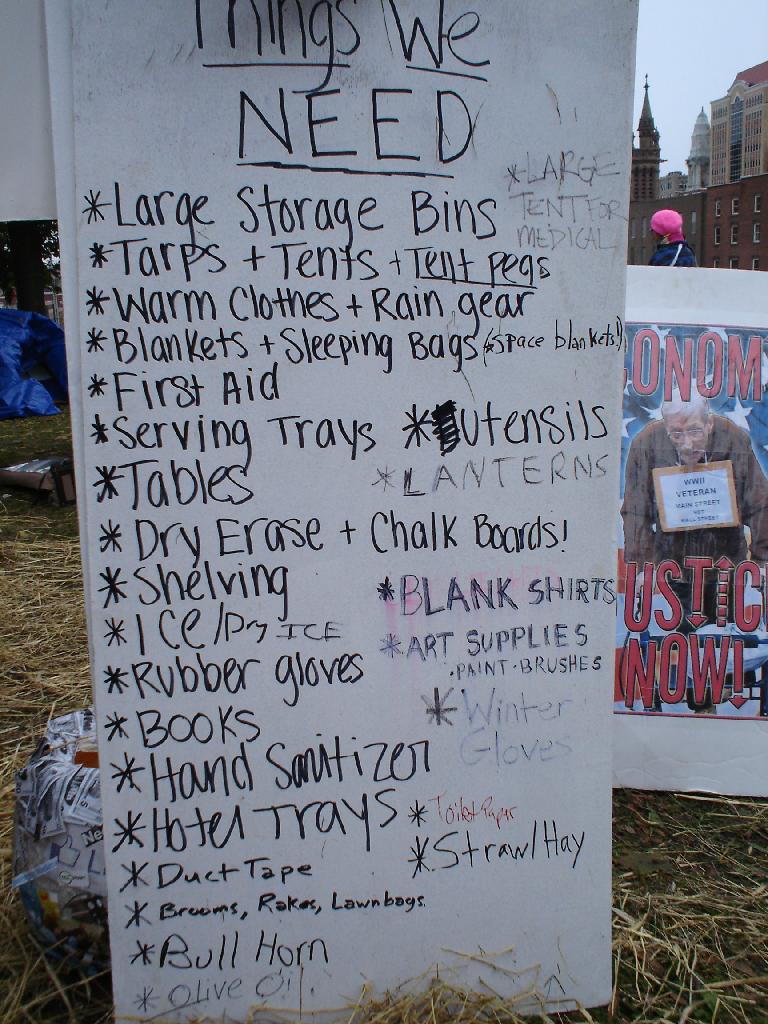 Things We
NEED
*LARGE
TENT FOR
MEDICAL
*Large Storage Bins
*Tarps + Tents + Tent pegs
*Warm Clothes + Rain gear
*Blankets + Sleeping Bags (*space blankets!)
*First Aid
*Serving Trays *Utensils
*Tables *LANTERNS
*Dry Erase + Chalk Boards!
*Shelving *BLANK SHIRTS
*ICE/Dry ICE *ART SUPPLIES
·PAINT·BRUSHES
*Rubber gloves
*Books *Winter
Gloves
*Hand Sanitizer
*Hotel Trays *Toilet Paper
*Straw/Hay
*Duct Tape
*Brooms, Rakes, Lawnbags.
*Bull Horn
*Olive Oil
ONOM
WWII
VETERAN
MAIN STREET
NOT
WALL STREET
USTIC
NOW!